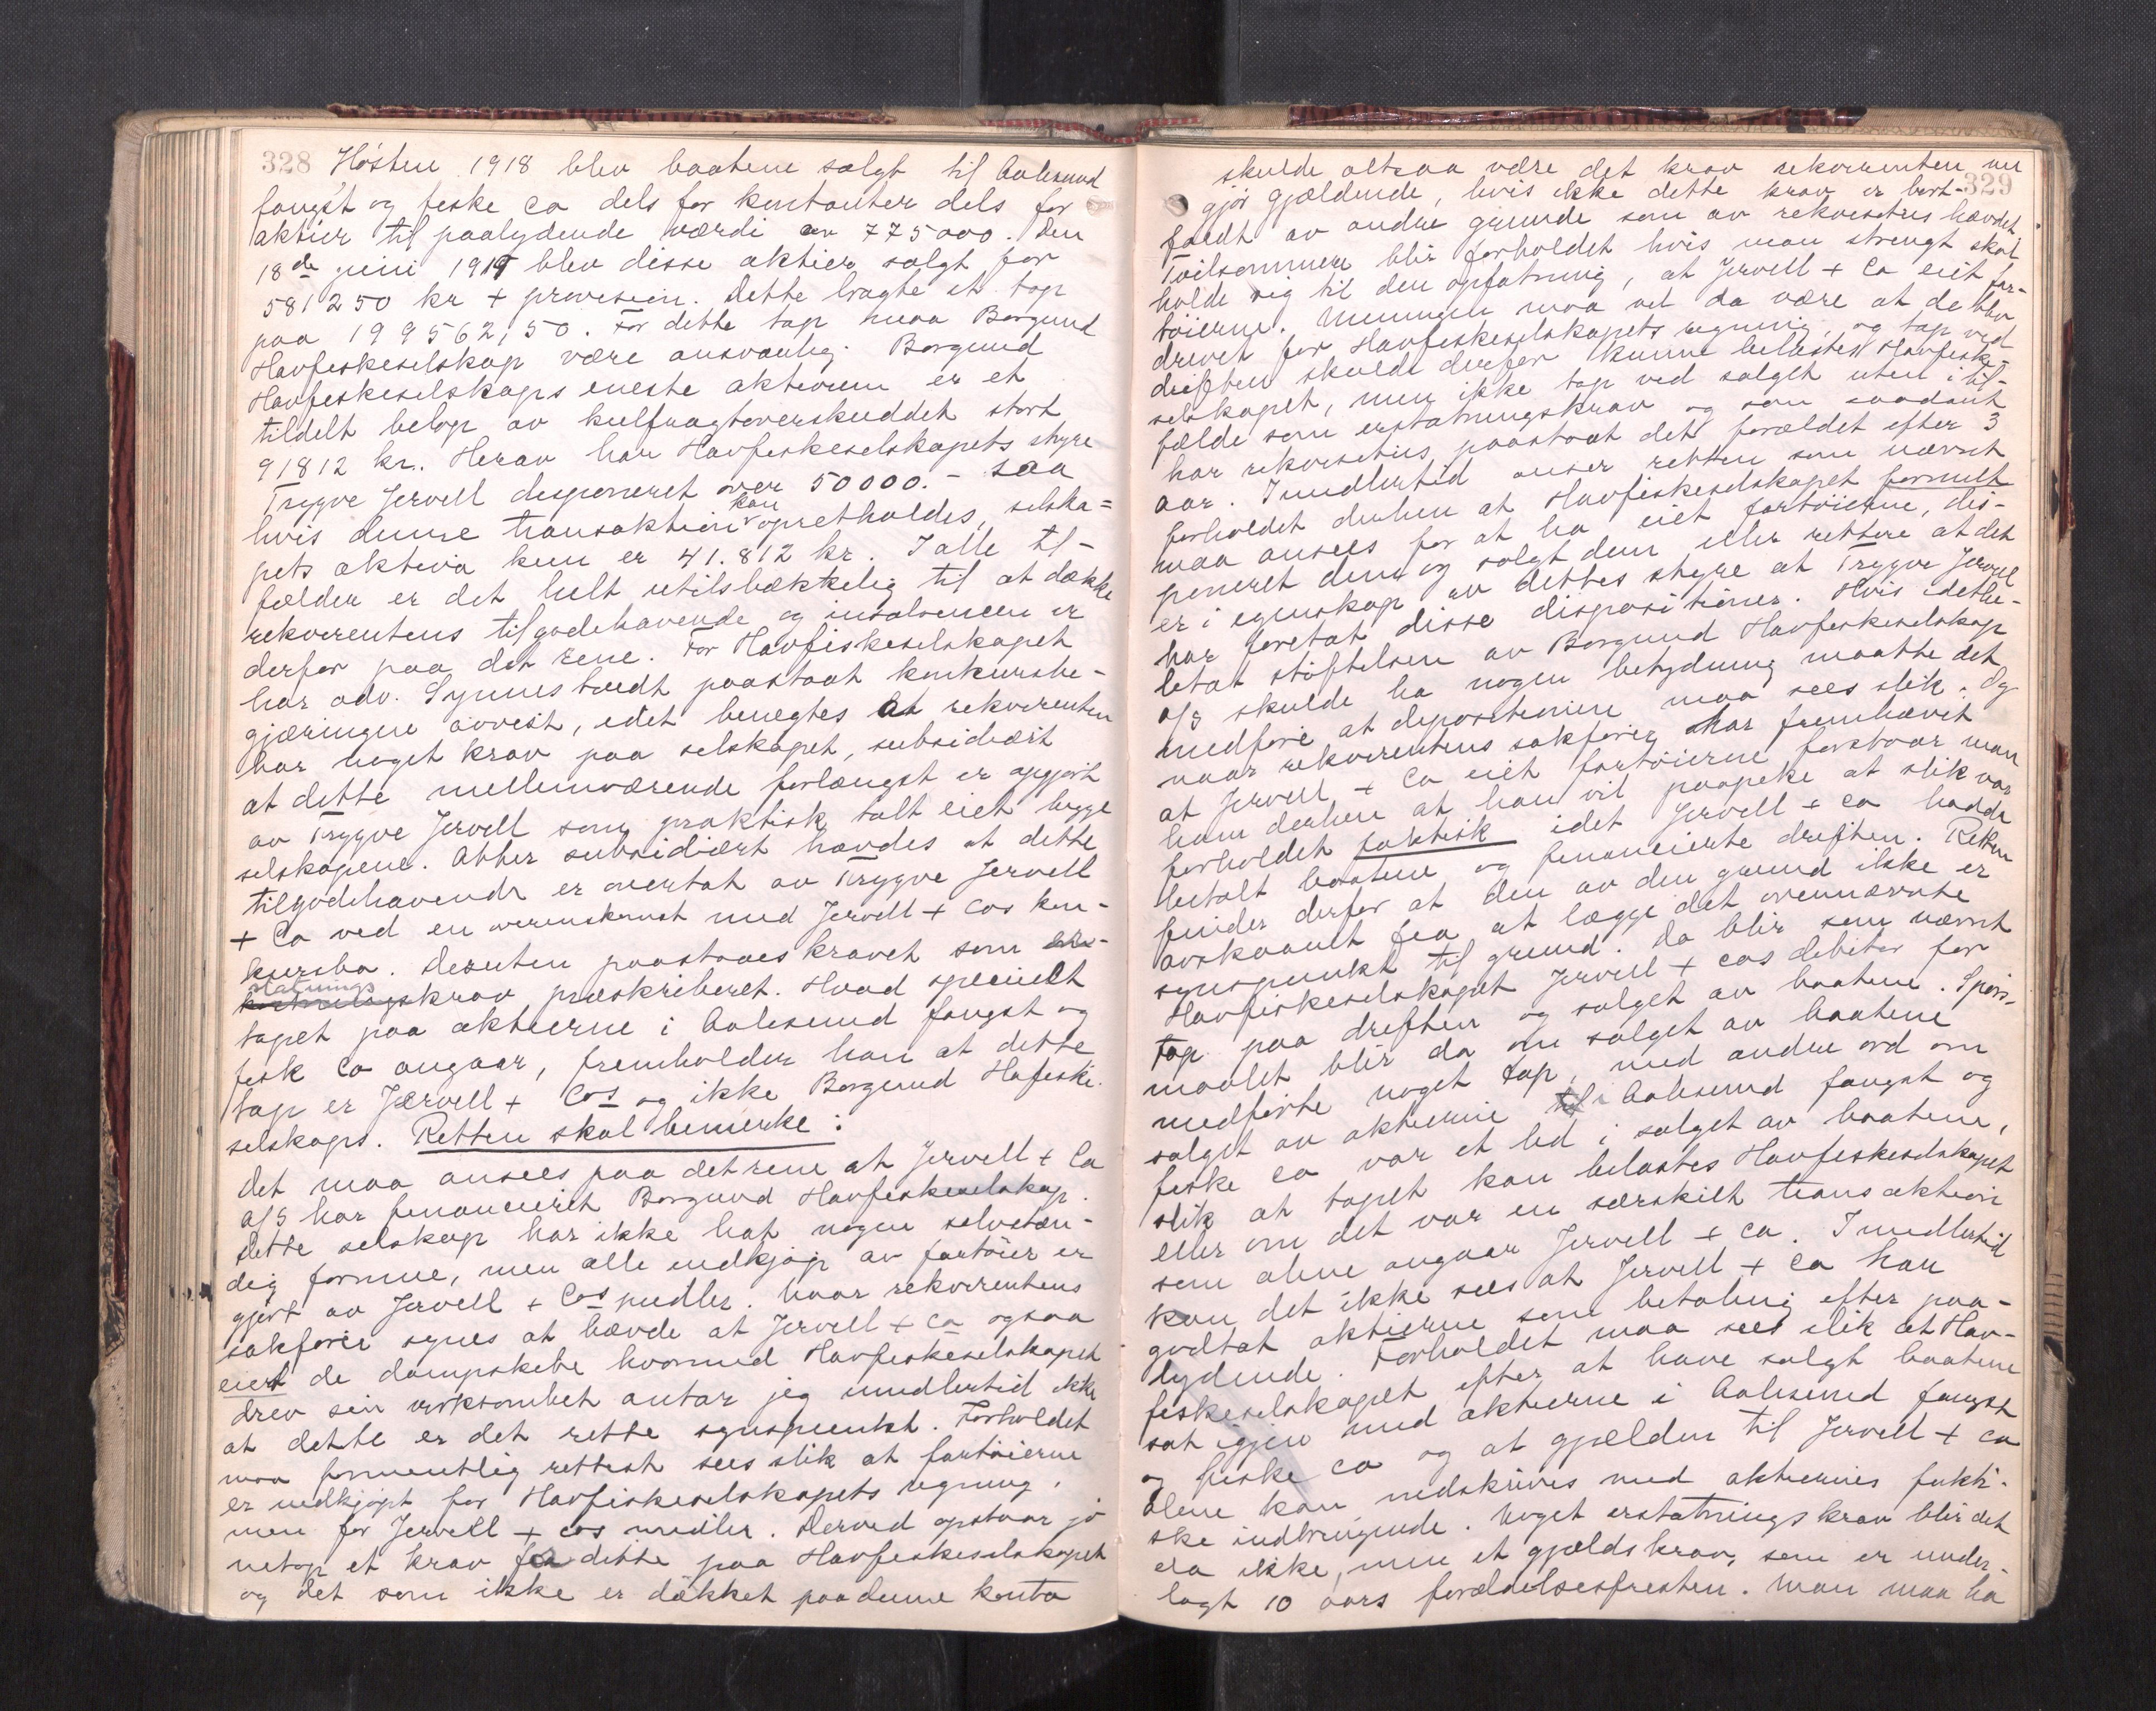 328 Hösten 1918 blev baatene solgt til Aalesund
fangst og fiske Co dels for kontanter dels for
aktier til paalydende værdi av 775000. Den
18de juni 1919 blev disse aktier solgt for
581250 kr + provision. Dette bragte et tap
paa 199562,50. For dette tap maa Borgund
Havfiskeselskap være ansvarlig. Borgund
Havfiskeselskaps eneste aktivum er et
tildelt beløp av kulfragtoverskuddet stort
91812 kr. Herav har Havfiskeselskapets styre
Trygve Jervell disponeret over 50000.- saa
hvis denne transaktion kan opretholdes, selska=
pets aktiva kun er 41.812 kr. I alle til-
fælder er det helt utilstrækkelig til at dække
rekvirentens tilgodehavende og insolvensen er
derfor paa det rene. For Havfiskeselskapet
har adv. Synnestvedt paastaat konkursbe-
gjæringen avvist, idet benegtes at rekvirenten
har noget krav paa selskapet, subsidiært
at dette mellemværende forlængst er opgjort
av Trygve Jervell som praktisk talt eiet begge
selskapene. Atter subsidiært hævdes at dette
tilgodehavende er overtat av Trygve Jervell
+ Co ved en overenskomst med Jervell + Cos kon-
kursbo. Desuten paastaaes kravet som er-
statningskrav præskriberet. Hvad specielt
tapet paa aktierne i Aalesund fangst og
fisk Co angaar, fremholder han at dette
tap er Jervell + Cos og ikke Borgund Hafiske-
selskaps. Retten skal bemerke:
Det maa ansees paa det rene at Jervell + Co
A/S har financieret Borgund Havfiskeselskap.
Dette selskap har ikke hat nogen selvstæn-
dig formue, men alle indkjøp av fartöier er
gjort av Jervell + Cos midler. Naar rekvirentens
sakförer synes at hævde at Jervell + Co ogsaa
eiert de dampskibe hvormed Havfiskeselskapet
drev sin virksomhet antar jeg imidlertid ikke
at dette er det rette synspunkt. Forholdet
maa formentlig rettest sees slik at fartöierne
er indkjøpt for Havfiskeselskapets regning,
men for Jervell + Cos midler. Derved opstaar jo
netop et krav fra dette paa Havfiskeselskapet
og det som ikke er dækket paa denne konto
329
skulde altsaa være det krav rekvirenten nu
gjør gjældende, hvis ikke dette krav er bort-
faldt av andre grunde som av rekvisitus hævdet.
Tvilsommere blir forholdet hvis man strengt skal
holde sig til den opfatning, at Jervell + Co eiet far-
töierne. Meningen maa vel da være at de blev
drevet for Havfiskeselskapets regning, og tap ved
driften skulde derfor kunne belastes Havfiske-
selskapet, men ikke tap ved salget uten i til-
fælde som erstatningskrav og som saadant
har rekvisitus paastaat det forældet efter 3
aar. Imidlertid anser retten som nævnt
forholdet derhen at Havfiskeselskapet formelt
maa ansees for at ha eiet fartöierne, dis-
poneret dem og solgt dem eller rettere at det
er i egenskap av dettes styre at Trygve Jervell
har foretat disse dispositioner. Hvis idethe-
letat stiftelsen av Borgund Havfiskeselskap
A/S skulde ha nogen betydning maatte det
medføre at dispositionen maa sees slik. Og
naar rekvirentens sakfører har fremhævet
at Jervell + Co eiet fartöierne forstaar man
ham derhen at han vil paapeke at slik var
forholdet faktisk idet Jervell + Co hadde
betalt baatene og financierte driften. Retten
finder derfor at den av den grund ikke er
avskaaret fra at lægge det ovennævnte
synspunkt til grund. Da blir som nævnt
Havfiskeselskapet Jervell + Cos debitor for
tap paa driften og salget av baatene. Spörs-
maalet blir da om salget av baatene
medførte noget tap, med andre ord om
salget av aktierne i Aalesund fangst og
fiske Co var et led i salget av baatene,
slik at tapet kan belastes Havfiskeselskapet
eller om det var en særskilt transaktion
som alene angaar Jervell + Co. Imidlertid
kan det ikke sees at Jervell + Co har
godtat aktierne som betaling efter paa-
lydende. Forholdet maa sees slik at Hav-
fiskeselskapet efter at have solgt baatene
sat igjen med aktierne i Aalesund fangst
og fiske Co og at gjælden til Jervell + Co
alene kan nedskrives med aktiernes fakti-
ske indbringende. Noget erstatningskrav blir det
da ikke, men et gjældskrav, som er under-
lagt 10 aars forældelsesfristen. Man maa ha